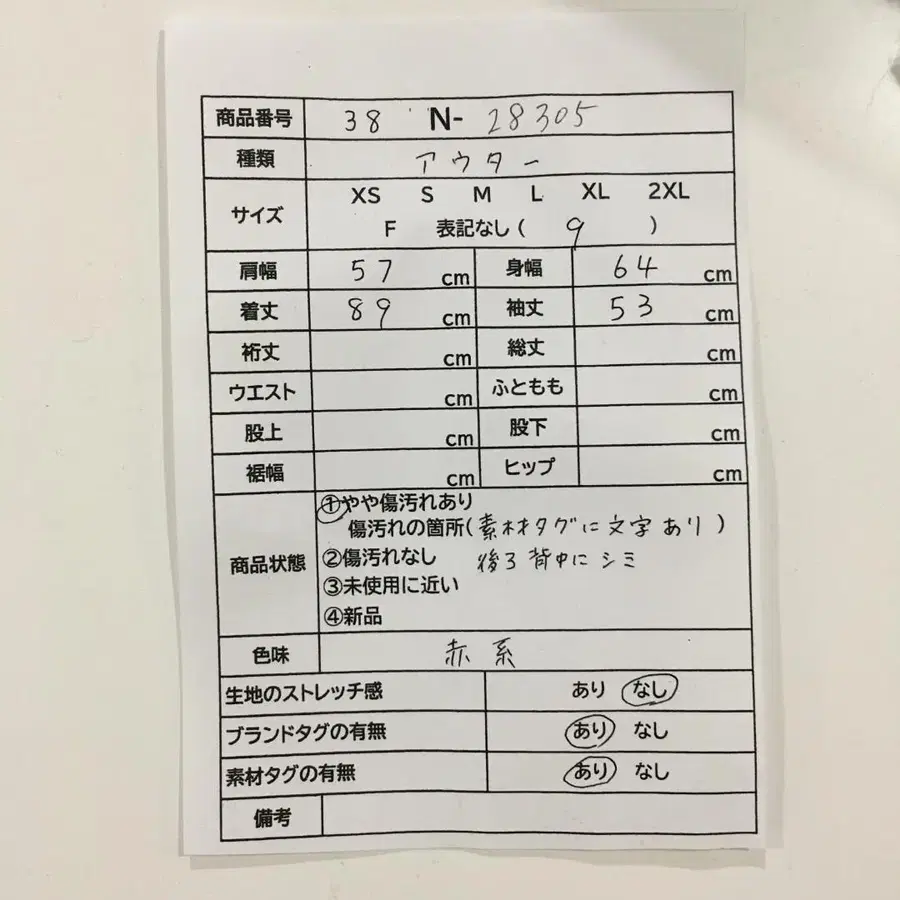 商品番号 38 N- 28305
種類 アウター
サイズ XS S M L XL 2XL
F 表記なし ( 9 )
肩幅 57 cm 身幅 64 cm
着丈 89 cm 袖丈 53 cm
裄丈 cm 総丈 cm
ウエスト cm ふともも cm
股上 cm 股下 cm
裾幅 cm ヒップ cm
商品状態 ①やや傷汚れあり
傷汚れの箇所(素材タグに文字あり)
②傷汚れなし 後ろ背中にシミ
③未使用に近い
④新品
色味 赤系
生地のストレッチ感 あり なし
ブランドタグの有無 あり なし
素材タグの有無 あり なし
備考